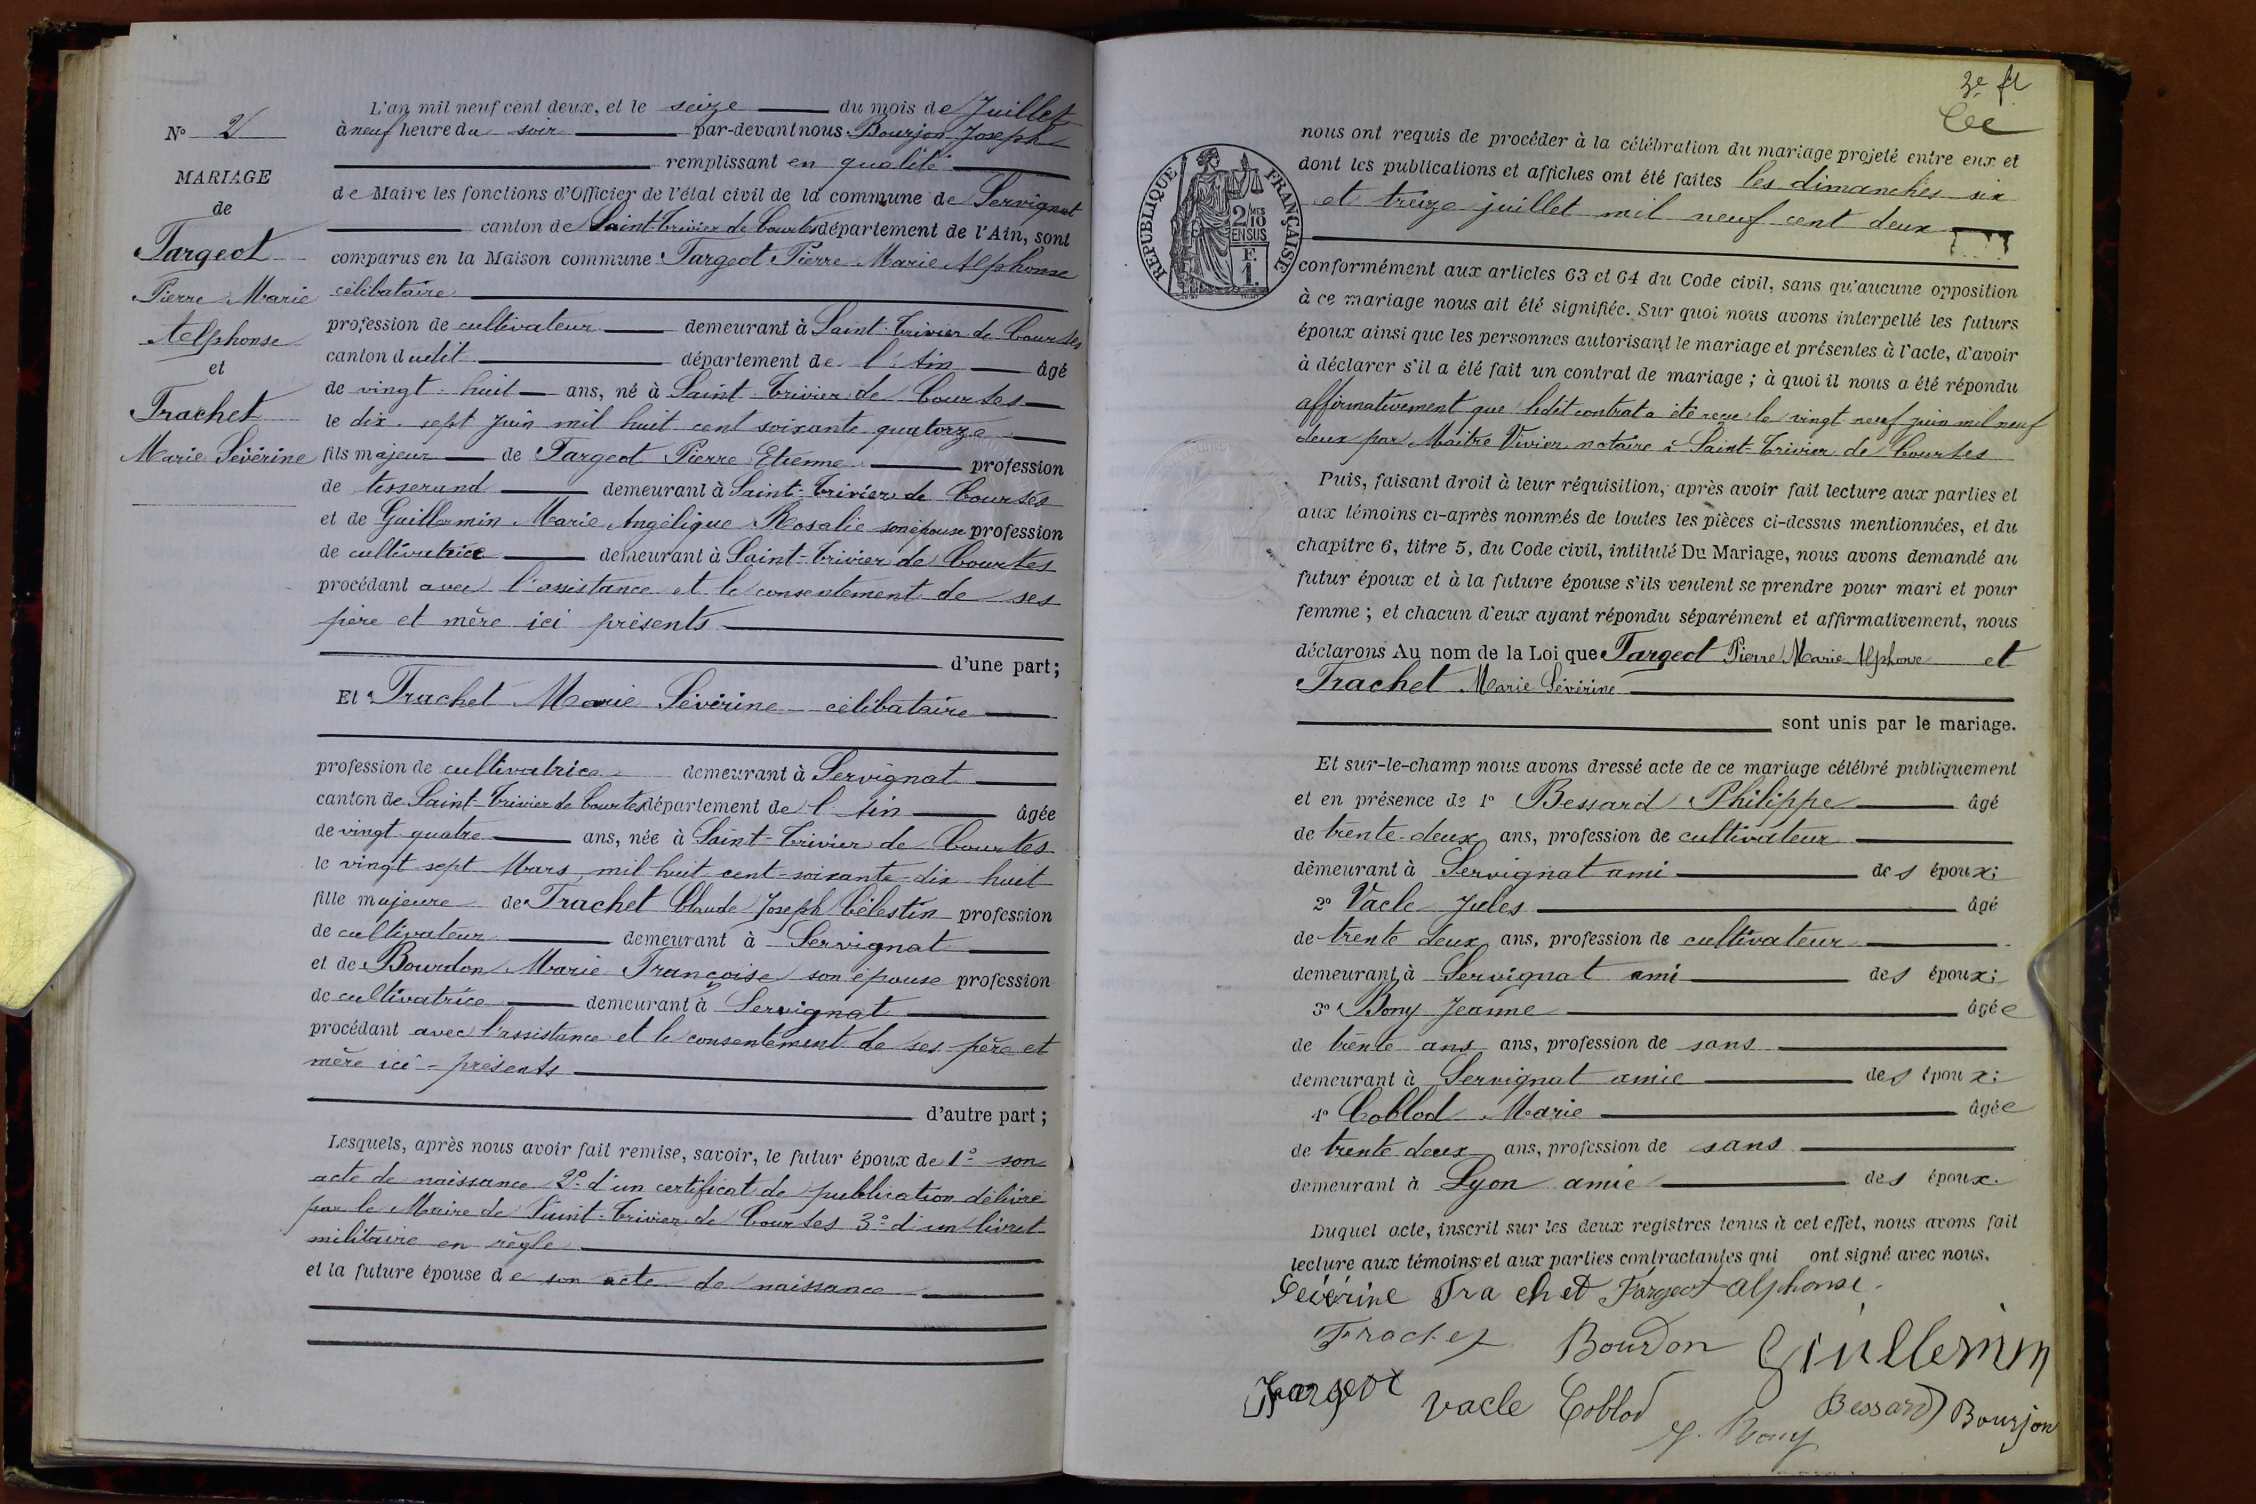 L'an mil neuf cent deux, et le seize du mois de Juillet
N° 2
à neuf heure du soir par-devant nous Bourjon Joseph
remplissant en qualité
MARIAGE
de Maire les fonctions d'Officier de l'état civil de la commune de Servignat
de
canton de Saint-Trivier de Courtes département de l'Ain, sont
Fargeot
comparus en la Maison commune Fargeot Pierre Marie Alphonse
Pierre Marie
célibataire
Alphonse
profession de cultivateur demeurant à Saint-Trivier de Courtes
et
canton dudit département de l'Ain âgé
de vingt-huit ans, né à Saint Trivier de Courtes
Trachet
le dix-sept Juin mil huit cent soixante quatorze
Marie Sévérine
fils majeur de Fargeot Pierre Etienne profession
de tisserand demeurant à Saint-Trivier de Courtes
et de Guillermin Marie Angélique Rosalie son épouse profession
de cultivatrice demeurant à Saint-Trivier de Courtes
procédant avec l'assistance et le consentement de ses
père et mère ici présents
d'une part;
Et Trachet Marie Sévérine célibataire
profession de cultivatrice demeurant à Servignat
canton de Saint-Trivier de Courtes département de l'Ain âgée
de vingt quatre ans, née à Saint-Trivier de Courtes
le vingt sept Mars mil huit cent soixante-dix huit
fille majeure de Trachet Claude Joseph Célestin profession
de cultivateur demeurant à Servignat
et de Bourdon Marie Françoise son épouse profession
de cultivatrice demeurant à Servignat
procédant avec l'assistance et le consentement de ses père et
mère ici-présents
d'autre part;
Lesquels, après nous avoir fait remise, savoir, le futur époux de 1° son
acte de naissance 2° d'un certificat de publication délivré
par le Maire de Saint-Trivier de Courtes 3° d'un livret
militaire en règle
et la future épouse de son acte de naissance
3e
nous ont requis de procéder à la célébration du mariage projeté entre eux et
dont les publications et affiches ont été faites les dimanches six
et treize juillet mil neuf cent deux
REPUBLIQUE FRANÇAISE
2/10MES
EN SUS
F.
1.
conformément aux articles 63 et 64 du Code civil, sans qu'aucune opposition
à ce mariage nous ait été signifiée. Sur quoi nous avons interpellé les futurs
époux ainsi que les personnes autorisant le mariage et présentes à l'acte, d'avoir
à déclarer s'il a été fait un contrat de mariage; à quoi il nous a été répondu
affirmativement que ledit contrat a été reçu le vingt neuf juin mil neuf
deux par Maître Vivier notaire à Saint-Trivier de Courtes
Puis, faisant droit à leur réquisition, après avoir fait lecture aux parties et
aux témoins ci-après nommés de toutes les pièces ci-dessus mentionnées, et du
chapitre 6, titre 5, du Code civil, intitulé Du Mariage, nous avons demandé au
futur époux et à la future épouse s'ils veulent se prendre pour mari et pour
femme; et chacun d'eux ayant répondu séparément et affirmativement, nous
déclarons Au nom de la Loi que Fargeot Pierre Marie Alphonse et
Trachet Marie Sévérine
sont unis par le mariage.
Et sur-le-champ nous avons dressé acte de ce mariage célébré publiquement
et en présence de 1° Bessard Philippe âgé
de trente-deux ans, profession de cultivateur
demeurant à Servignat ami des époux;
2° Vacle Jules âgé
de trente deux ans, profession de cultivateur
demeurant à Servignat ami des époux;
3° Bony Jeanne âgée
de trente ans ans, profession de sans
demeurant à Servignat amie des époux;
4° Coblod Marie âgée
de trente deux ans, profession de sans
demeurant à Lyon amie des époux.
Duquel acte, inscrit sur les deux registres tenus à cet effet, nous avons fait
lecture aux témoins et aux parties contractantes qui ont signé avec nous.
Sévérine Trachet Fargeot Alphonse
Trachet Bourdon Guillermin
Fargeot Vacle Coblod J. Bony Bessard Bourjon